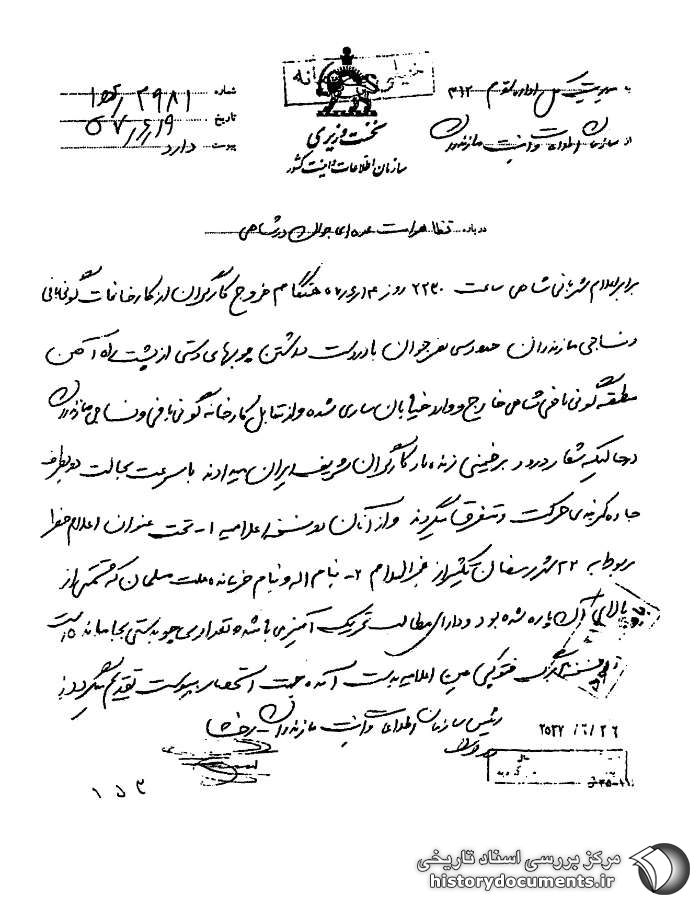 خیلی محرمانه
به مدیریت کل اداره سوم ۳۱۲
از سازمان اطلاعات و امنیت مازندران
نخست وزیری
سازمان اطلاعات و امنیت کشور
شماره ۲۹۸۱
تاریخ ۵۷/۶/۱۹
پیوست دارد
درباره تظاهرات عده ای جوان در شاهی
برابر اعلام شهربانی شاهی ساعت ۲۲۳۰ روز هنگام خروج کارگران از کارخانجات گونی بافی
و نساجی مازندران حدود سی نفر جوان با در دست داشتن چوبهای دستی از پشت راه آهن
منطقه گونی بافی شاهی خارج و وارد خیابان ساری شده و از مقابل کارخانه گونی بافی و نساجی مازندران
در حالیکه شعار درود بر خمینی زنده باد کارگران شریف ایران میدادند با سرعت بحالت دو بطرف
جاده حرکت و متفرق میگردند و از آنان دو نسخه اعلامیه ۱- تحت عنوان اعلام خطر
مربوط به ۲۲ شهر رمضان تکثیر از ۲- بنام اله و بنام خمینی ملت مسلمان که قسمتی از
بالای آن پاره شده بود و دارای مطالب تحریک آمیزی میباشد و تعدادی چوبدستی بجا مانده است
فتوکپی عین اعلامیه بدست آمده جهت استحضار به پیوست تقدیم میگردد
رئیس سازمان اطلاعات و امنیت مازندران
۲۵۳۷/۶/۲۶
۱۵۳
مرکز بررسی اسناد تاریخی
historydocuments.ir